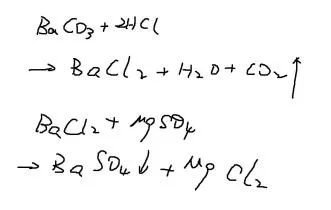 BaCO3 + 2HCl
→ BaCl2 + H2O + CO2↑
BaCl2 + MgSO4
→ BaSO4↓ + MgCl2